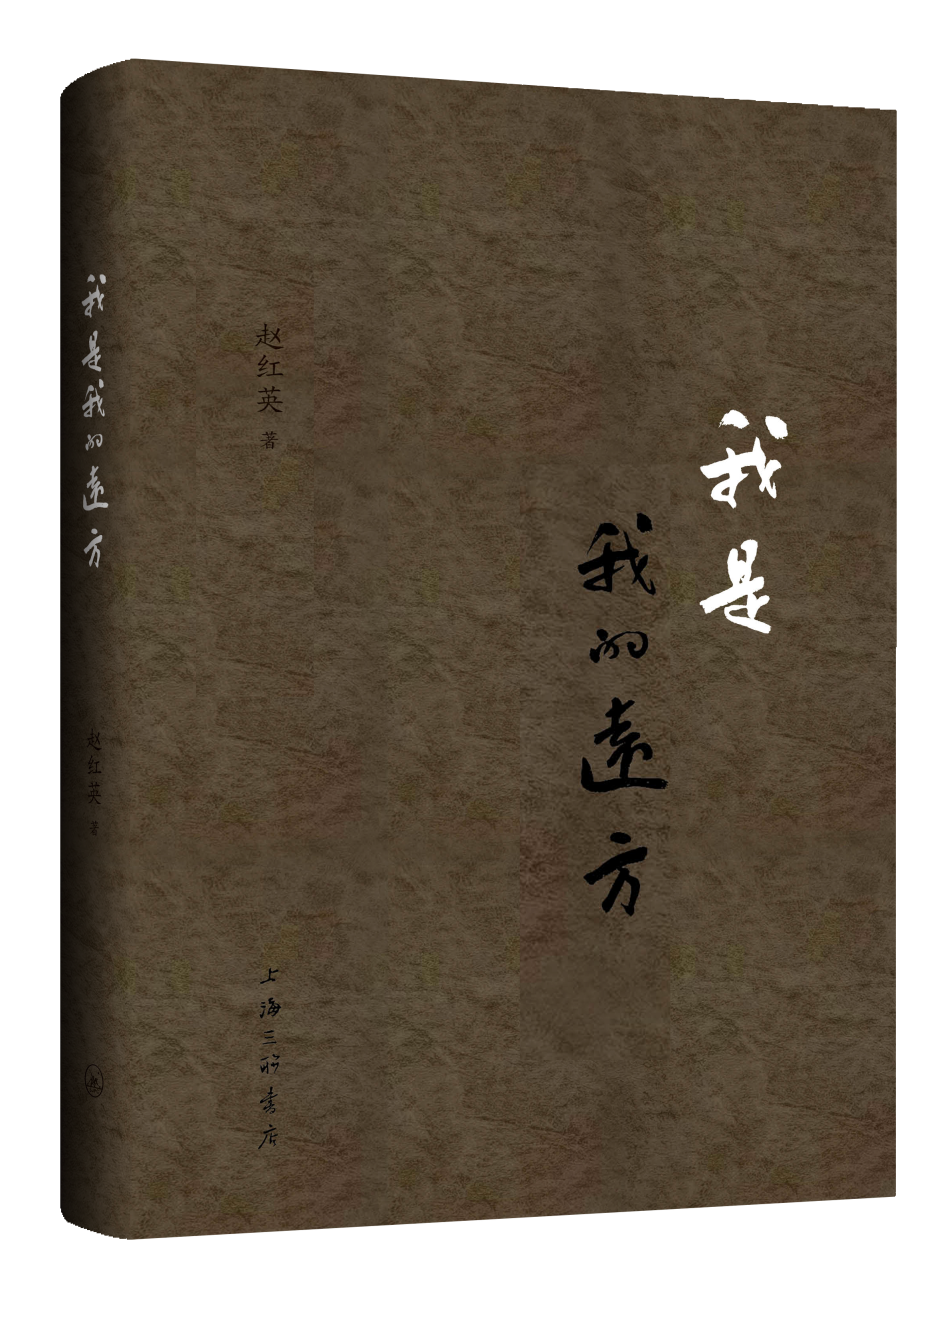 我是
我的遠方
赵红英 著
上海三联书店
我是我的遠方
赵红英 著